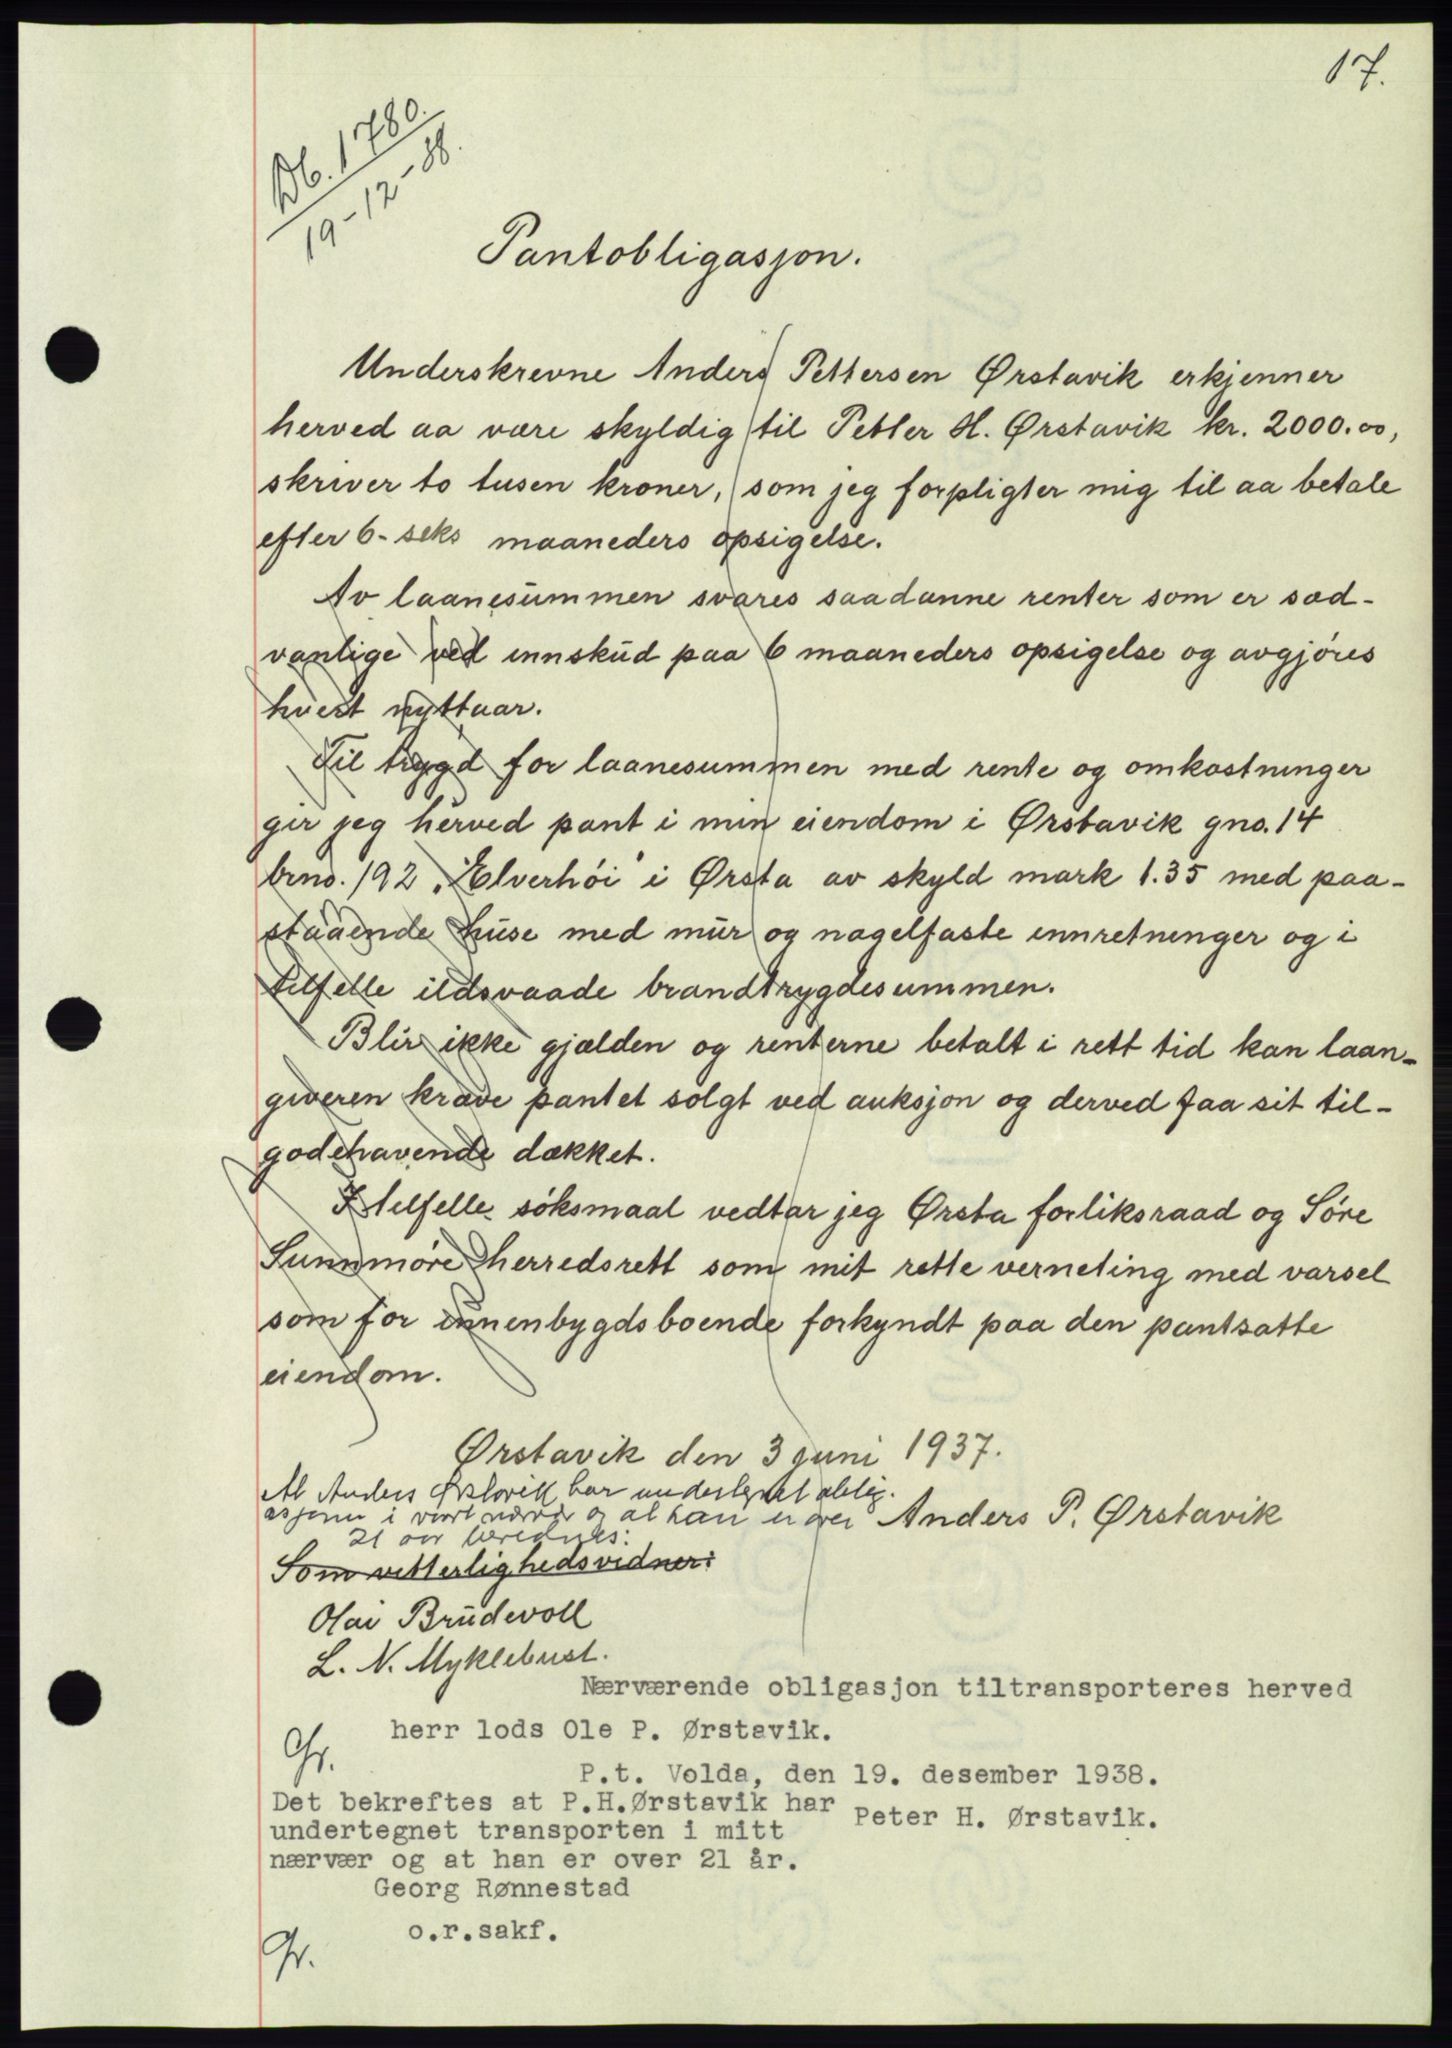 17.
Db. 1780.
19-12-38.
Pantobligasjon.
Underskrevne Anders Pettersen Ørstavik erkjenner
herved aa være skyldig til Petter H. Ørstavik kr. 2000.00,
skriver to tusen kroner, som jeg forpligter mig til aa betale
efter 6- seks maaneders opsigelse.
Av laanesummen svares saadanne renter som er sæd-
vanlige ved innskud paa 6 maaneders opsigelse og avgjöres
hvert nyttaar.
Til trygd for laanesummen med rente og omkostninger
gir jeg herved pant i min eiendom i Ørstavik gno. 14
brno. 192 „Elverhöi" i Ørsta av skyld mark 1.35 med paa-
staaende huse med mur og nagelfaste innretninger og i
tilfelle ildsvaade brandtrygdesummen.
Blir ikke gjælden og renterne betalt i rett tid kan laan-
giveren kræve pantet solgt ved auksjon og derved faa sit til-
godehavende dækket.
I tilfelle söksmaal vedtar jeg Ørsta forliksraad og Söre
Sunnmöre herredsrett som mit rette verneting med varsel
som for innenbygdsboende forkyndt paa den pantsatte
eiendom.
Ørstavik den 3 juni 1937.
At Anders Ørstavik har undertegnet oblig-
asjonen i vårt nærvær og at han er over
21 aar bevidnes:
Anders P. Ørstavik
Som vitterlighedsvidner:
Olai Brudevoll
L. N. Myklebust.
Nærværende obligasjon tiltransporteres herved
herr lods Ole P. Ørstavik.
Gr.
P.t. Volda, den 19. desember 1938.
Det bekreftes at P.H.Ørstavik har
Peter H. Ørstavik.
undertegnet transporten i mitt
nærvær og at han er over 21 år.
Georg Rønnestad
o.r.sakf.
Gr.